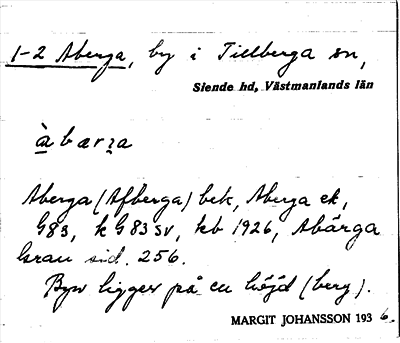 1-2 Aberga, by i Tillberga sn,
Siende hd, Västmanlands län
àbærga
Aberga (Afberga) bek, Aberga ek,
G83, k G83 SV, kb 1926, Abärga
Grau sid. 256.
Byn ligger på en höjd (berg).
MARGIT JOHANSSON 1936.